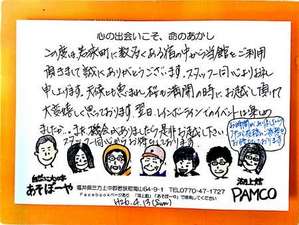 心の出会いこそ、命のあかし
この度は若狭町に数多くある宿の中から当館をご利用
頂きまして誠にありがとうございます。スタッフ一同心よりお礼
申し上げます。天候にも恵まれ桜も満開の時に、お越し頂けて
大変嬉しく思っております。翌日、レインボーラインでのイベントは楽しめ
ましたか...また機会がありましたら是非お越し下さい
スタッフ一同心からお待ちしております。
自然にドキドキ
あそぼーや
湖上館
PAMCO
福井県三方上中郡若狭町海山64-9-1 TEL0770-47-1727
Facebookページあり 「湖上館」「あそぼーや」で検索してください
H26.4.13(Sun)